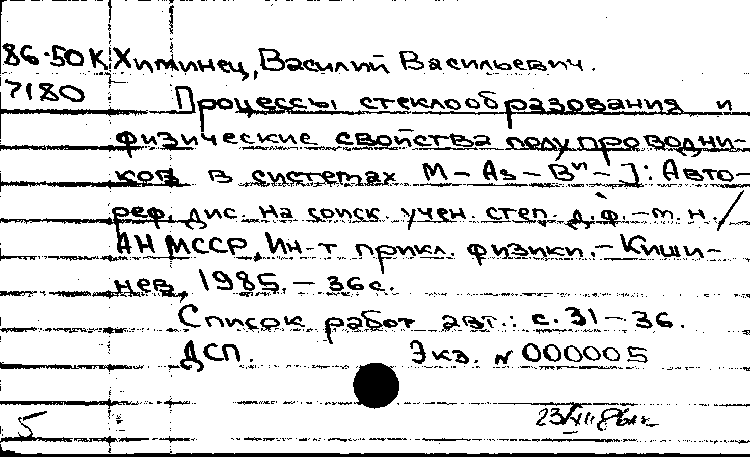 86-50К Химинец, Василий Васильевич.
7180 Процессы стеклообразования и
физические свойства полупроводни-
ков в системах M-As-Bⱽᴵ-J: Авто-
реф. дис. на соиск. учен. степ. д.ф.-м.н./
АН МССР, Ин-т прикл. физики.-Киши-
нев, 1985.-36с.
Список работ авт.: с.31-36.
ДСП. Экз. N 000005
5